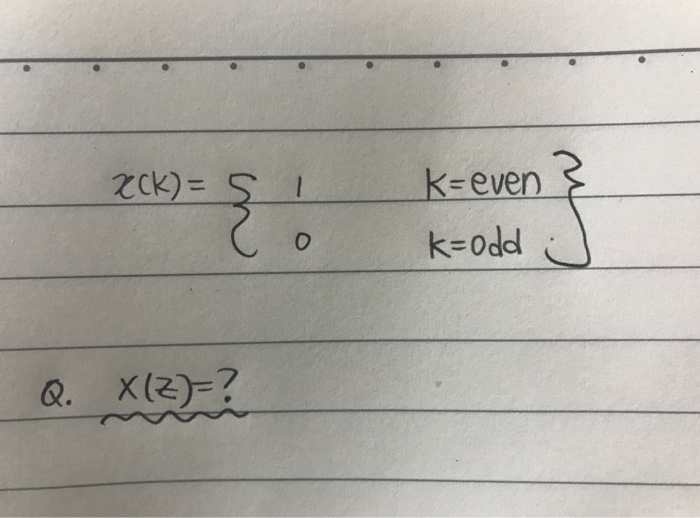 x(k) = { 1 k=even }
0 k=odd
Q. X(z)=?